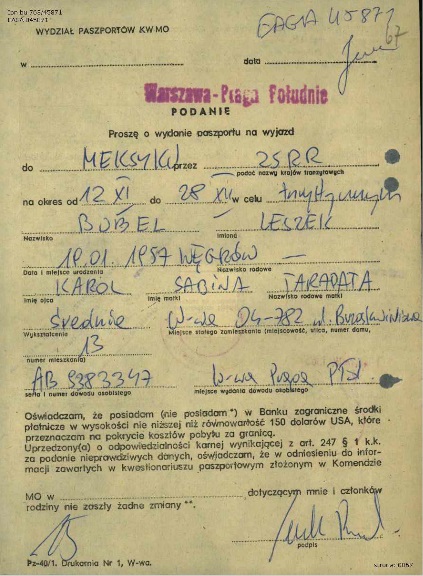 WYDZIAŁ PASZPORTÓW KWMO
EAGA 45871
w
data
67
Warszawa-Praga Południe
PODANIE
Proszę o wydanie paszportu na wyjazd
do MEKSYKU przez ZSRR
podać nazwy krajów tranzytowych
na okres od 12 XI do 28 XII w celu turystycznym
BUBEL LESZEK
Nazwisko Imiona
19.01.1957 WĘGRÓW —
Data i miejsce urodzenia Nazwisko rodowe
KAROL SABINA TARAPATA
Imię ojca Imię matki Nazwisko rodowe matki
Średnie W-wa 04-782 ul.
Wykształcenie Miejsce stałego zamieszkania (miejscowość, ulica, numer domu,
13
numer mieszkania)
AB 9383347 W-wa Praga Płd
seria i numer dowodu osobistego miejsce wydania dowodu osobistego
Oświadczam, że posiadam (nie posiadam*) w Banku zagraniczne środki
płatnicze w wysokości nie niższej niż równowartość 150 dolarów USA, które
przeznaczam na pokrycie kosztów pobytu za granicą.
Uprzedzony(a) o odpowiedzialności karnej wynikającej z art. 247 § 1 k.k.
za podanie nieprawdziwych danych, oświadczam, że w odniesieniu do infor-
macji zawartych w kwestionariuszu paszportowym złożonym w Komendzie
MO w dotyczącym mnie i członków
rodziny nie zaszły żadne zmiany**.
podpis
Pz-40/1. Drukarnia Nr 1, W-wa.